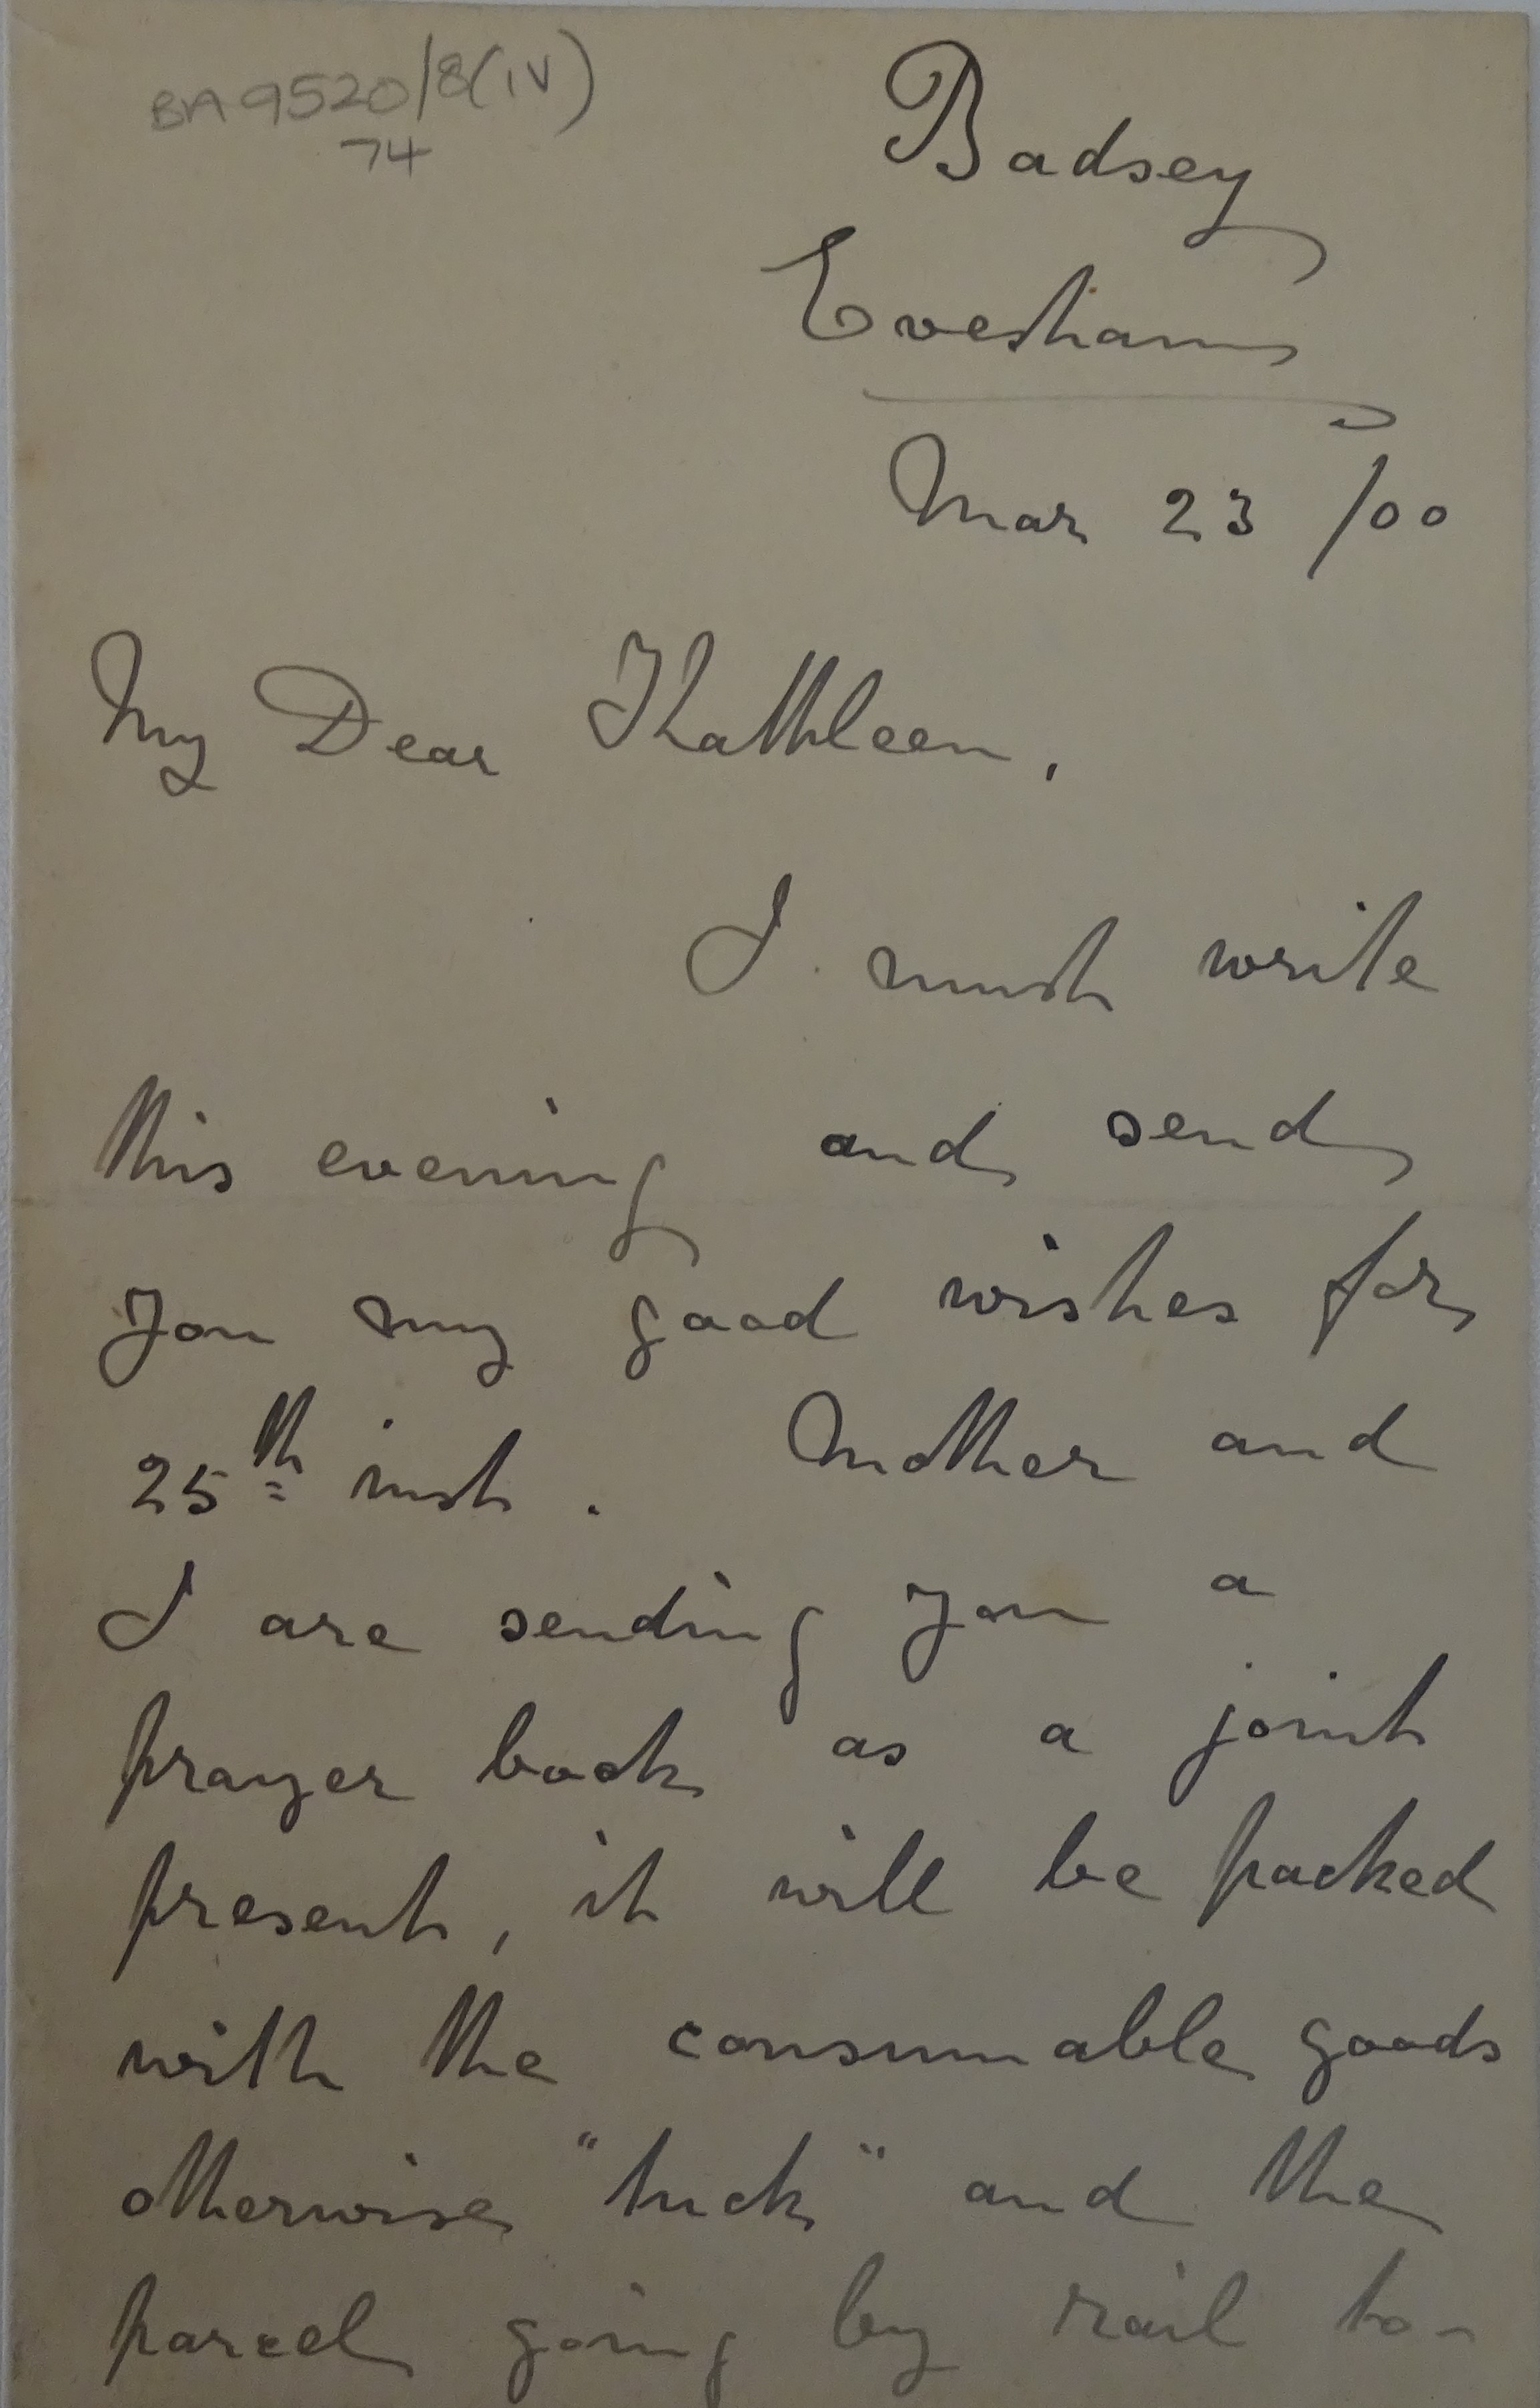 BA9520/8(IV)
74
Badsey
Evesham
Mar 23 /00
My Dear Kathleen,
I must write
this evening and send
you my good wishes for
25th inst. Mother and
I are sending you a
prayer book as a joint
present, it will be packed
with the consumable goods
otherwise "tuck" and the
parcel going by rail to-